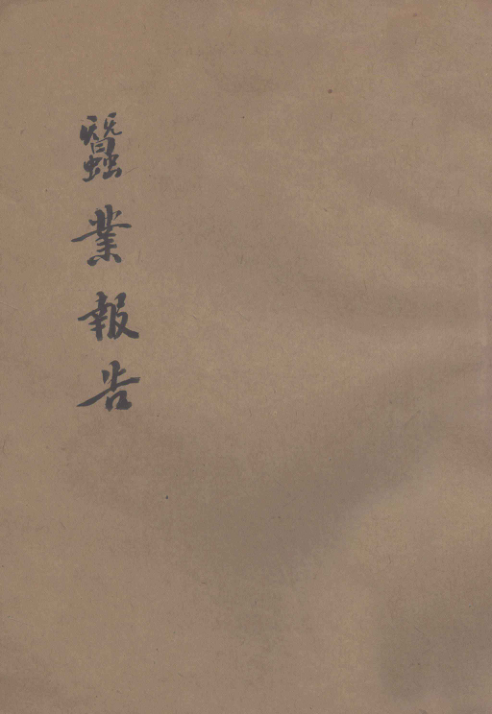 蠶業報告